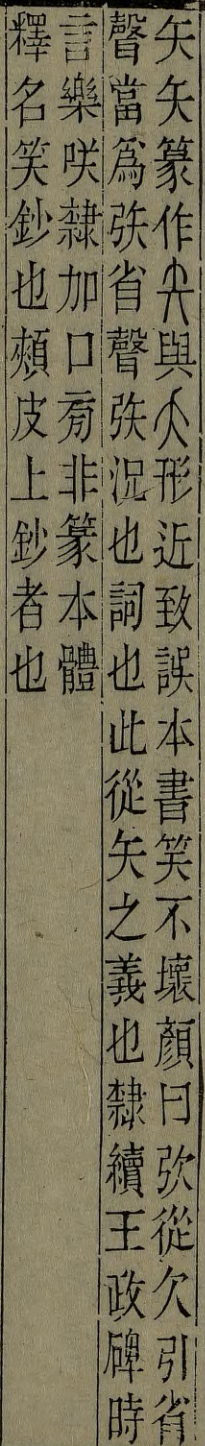 矢矢篆作𠂕與大形近致誤本書笑不壞顏曰弞從欠引省
聲當爲矤省聲矤況也詞也此從矢之義也隸續王政碑時
言樂咲隸加口𣃔非篆本體
釋名笑鈔也頰皮上鈔者也